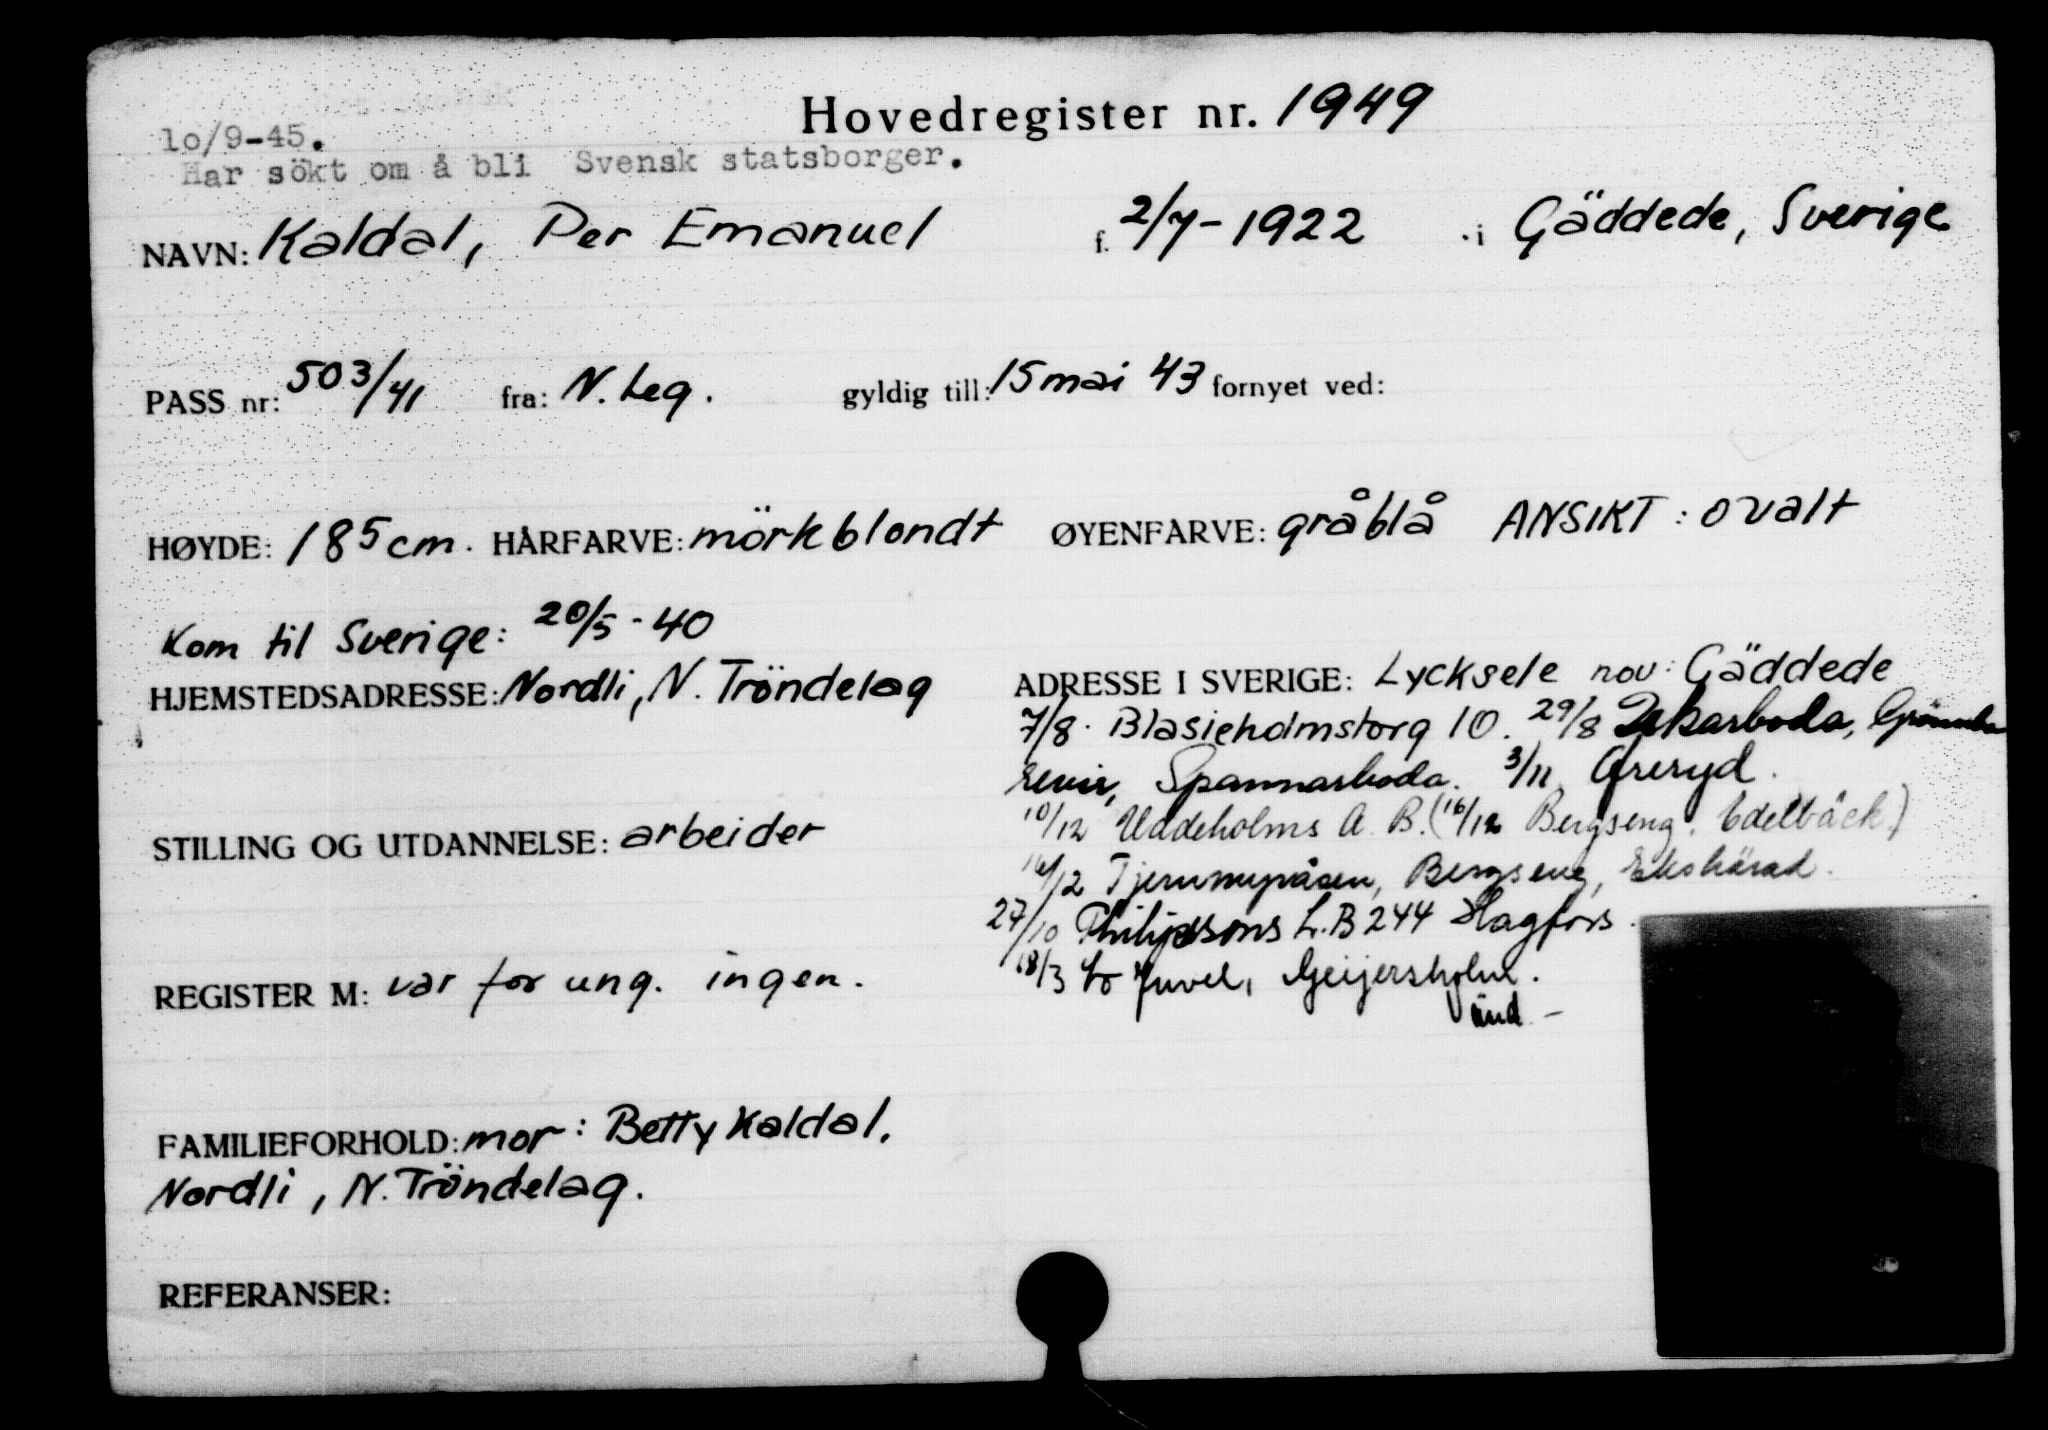 Hovedregister nr. 1949
1o/9-45.
Har sökt om å bli Svensk statsborger.
NAVN: Kaldal, Per Emanuel f. 2/7-1922 i Gäddede, Sverige
PASS nr: 503/41 fra: N. Leg. gyldig till: 15 mai 43 fornyet ved:
HØYDE: 185 cm. HÅRFARVE: mörkblondt ØYENFARVE: gråblå ANSIKT: ovalt
Kom til Sverige: 20/5-40
HJEMSTEDSADRESSE: Nordli, N. Tröndelag
ADRESSE I SVERIGE: Lycksele nov: Gäddede
7/8. Blasieholmstorg 10. 29/8
revir, Spannarboda. 3/11
10/12 Uddeholms A. B. (16/12 Bergseng. Edelbäck)
16/12 Bergseng, Ekshärad.
27/10 Philipssons L.B 244 Hagfors.
18/3 Juvel, Geijersholm.
STILLING OG UTDANNELSE: arbeider
REGISTER M: var for ung. ingen.
FAMILIEFORHOLD: mor: Betty Kaldal.
Nordli, N. Tröndelag.
REFERANSER: